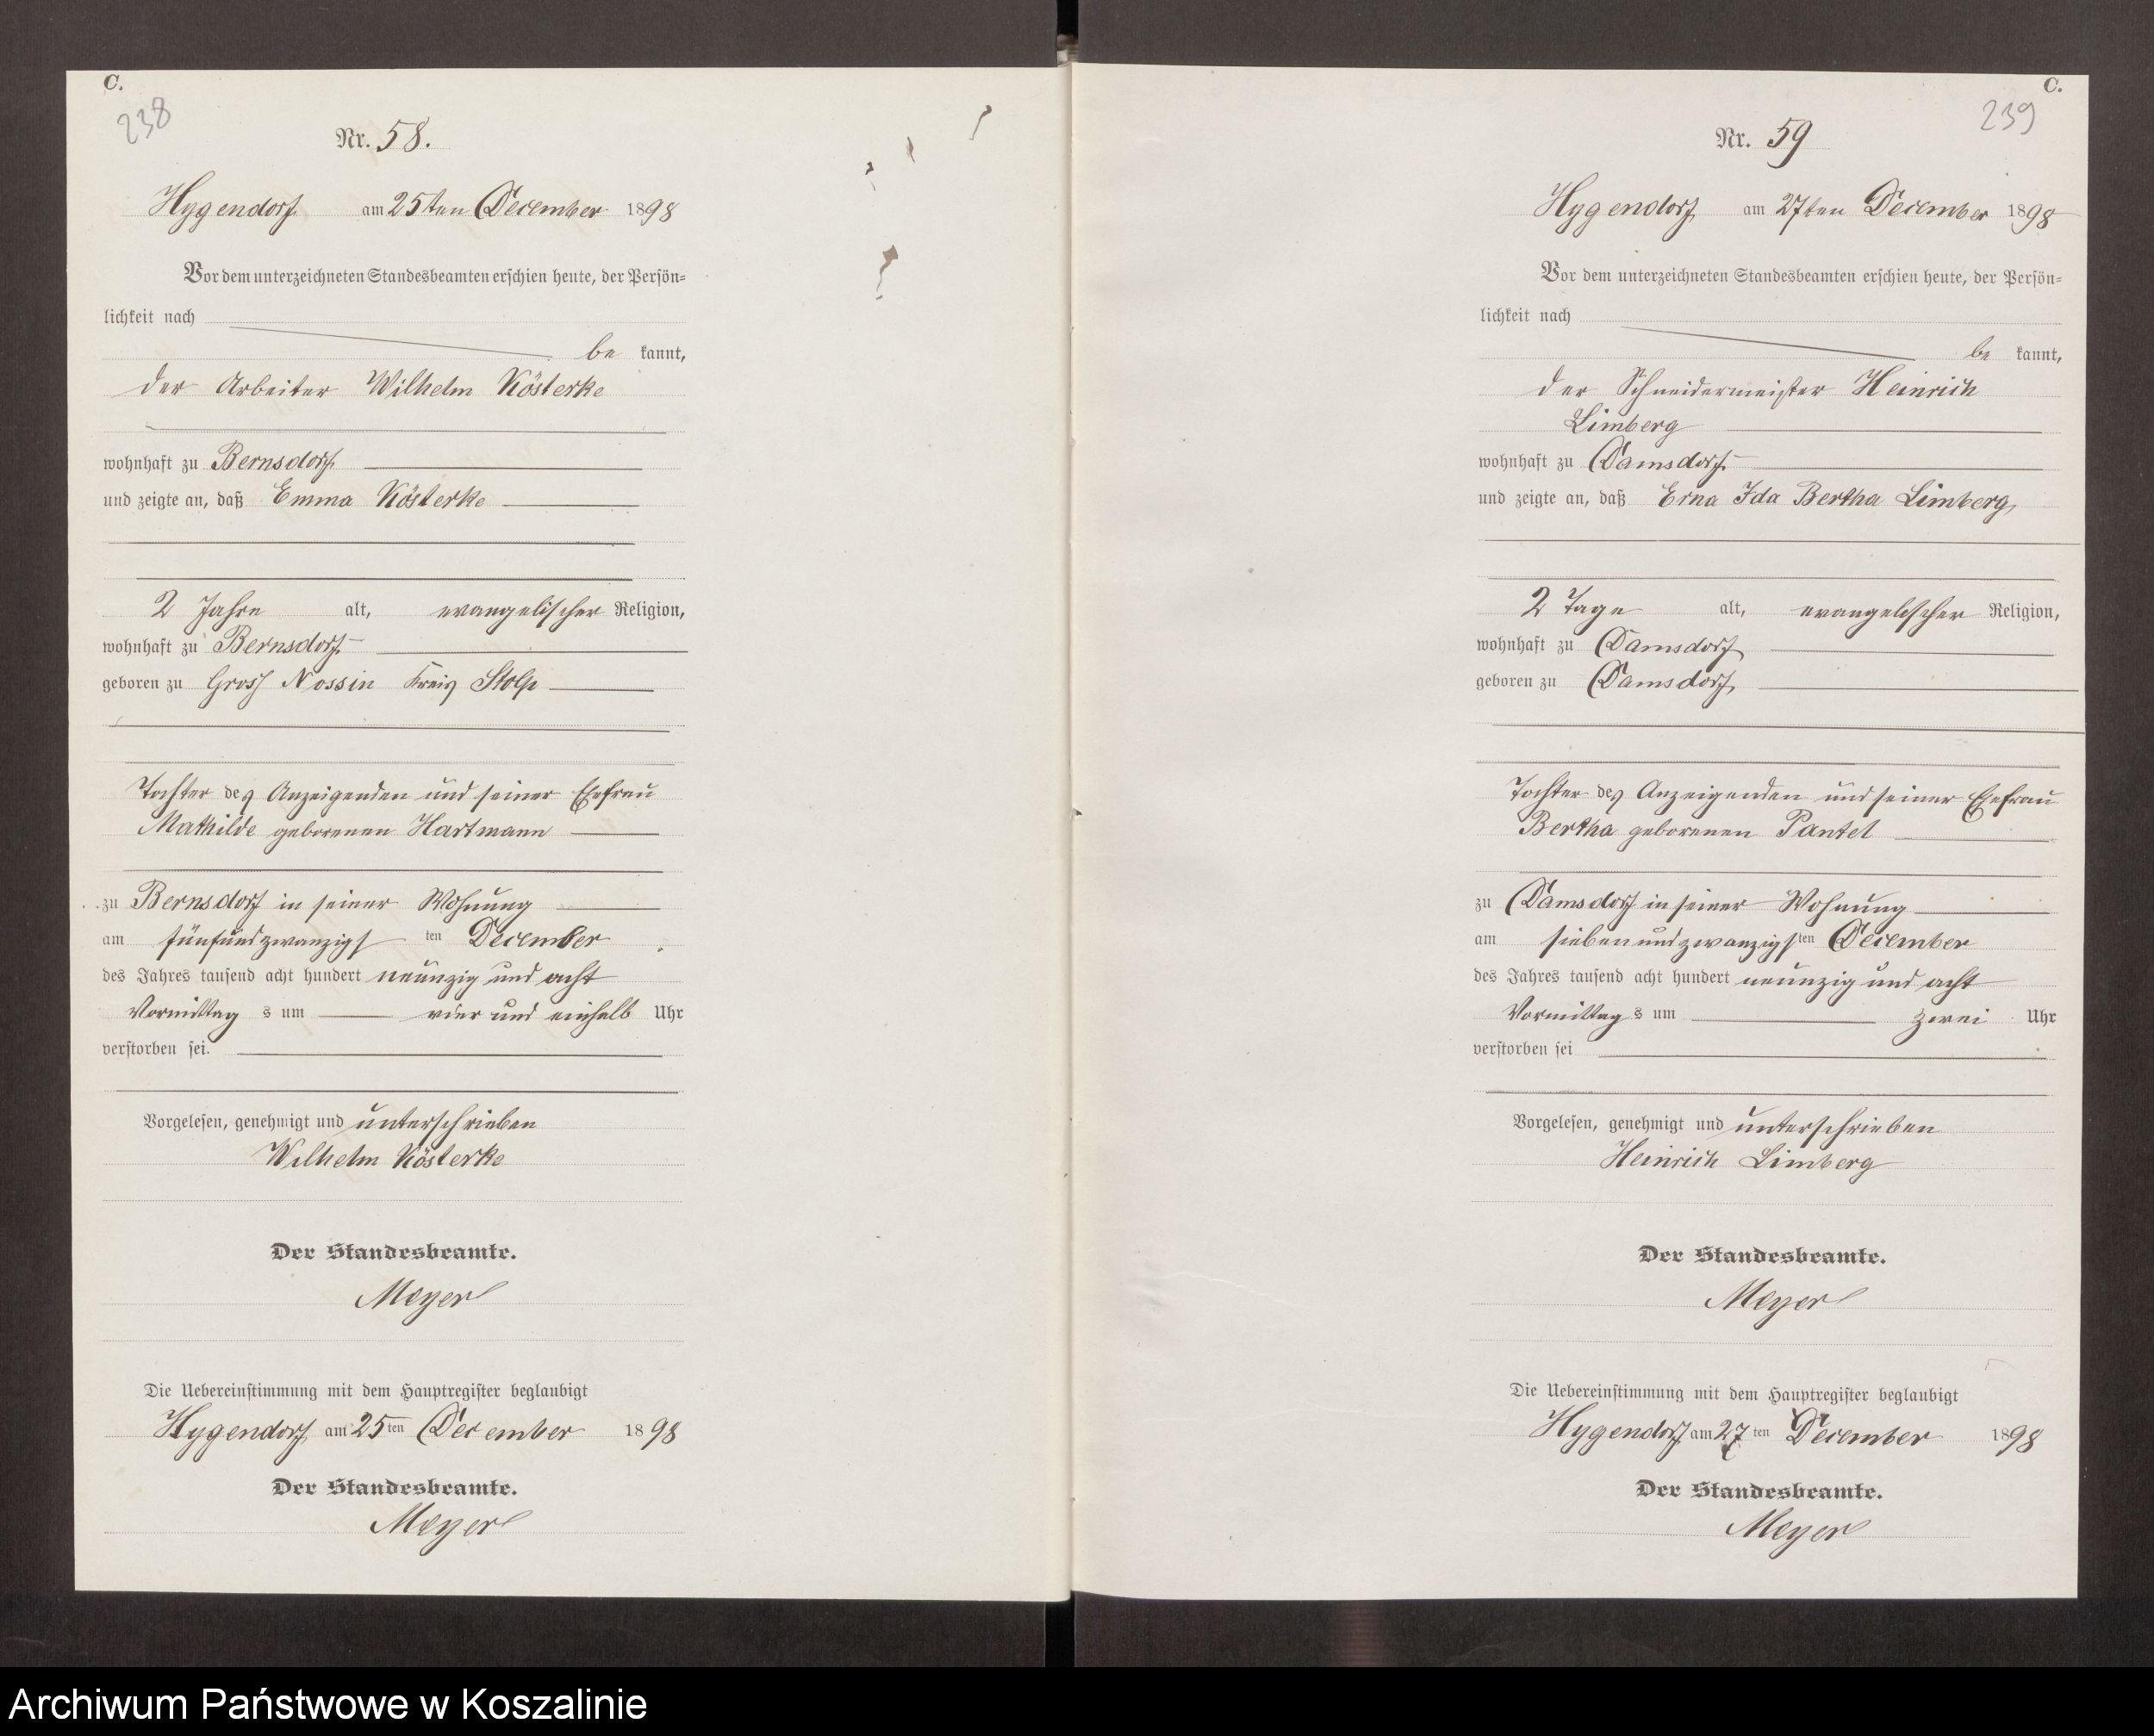 C.
238
Nr. 58.
Hygendorf am 25ten December 1898
Vor dem unterzeichneten Standesbeamten erschien heute, der Persön-
lichkeit nach
be kannt,
der Arbeiter Wilhelm Kösterke
wohnhaft zu Bernsdorf
und zeigte an, daß Emma Kösterke
2 Jahre alt, evangelischer Religion,
wohnhaft zu Bernsdorf
geboren zu Gross Nossin Kreis Stolp
Tochter des Anzeigenden und seiner Ehefrau
Mathilde geborenen Hartmann
zu Bernsdorf in seiner Wohnung
am fünfundzwanzigs ten December
des Jahres tausend acht hundert neunzig und acht
Vormittag s um vier und einhalb Uhr
verstorben sei.
Vorgelesen, genehmigt und unterschrieben
Wilhelm Kösterke
Der Standesbeamte.
Meyer
Die Uebereinstimmung mit dem Hauptregister beglaubigt
Hygendorf am 25ten December 1898
Der Standesbeamte.
Meyer
C.
239
Nr. 59
Hygendorf am 27ten December 1898
Vor dem unterzeichneten Standesbeamten erschien heute, der Persön-
lichkeit nach
be kannt,
der Schneidermeister Heinrich
Limberg
wohnhaft zu Damsdorf
und zeigte an, daß Erna Ida Bertha Limberg,
2 Tage alt, evangelischer Religion,
wohnhaft zu Damsdorf
geboren zu Damsdorf
Tochter des Anzeigenden und seiner Ehefrau
Bertha geborenen Pantel
zu Damsdorf in seiner Wohnung
am siebenundzwanzigs ten December
des Jahres tausend acht hundert neunzig und acht
Vormittag s um zwei Uhr
verstorben sei
Vorgelesen, genehmigt und unterschrieben
Heinrich Limberg
Der Standesbeamte.
Meyer
Die Uebereinstimmung mit dem Hauptregister beglaubigt
Hygendorf am 27ten December 1898
Der Standesbeamte.
Meyer
Archiwum Państwowe w Koszalinie